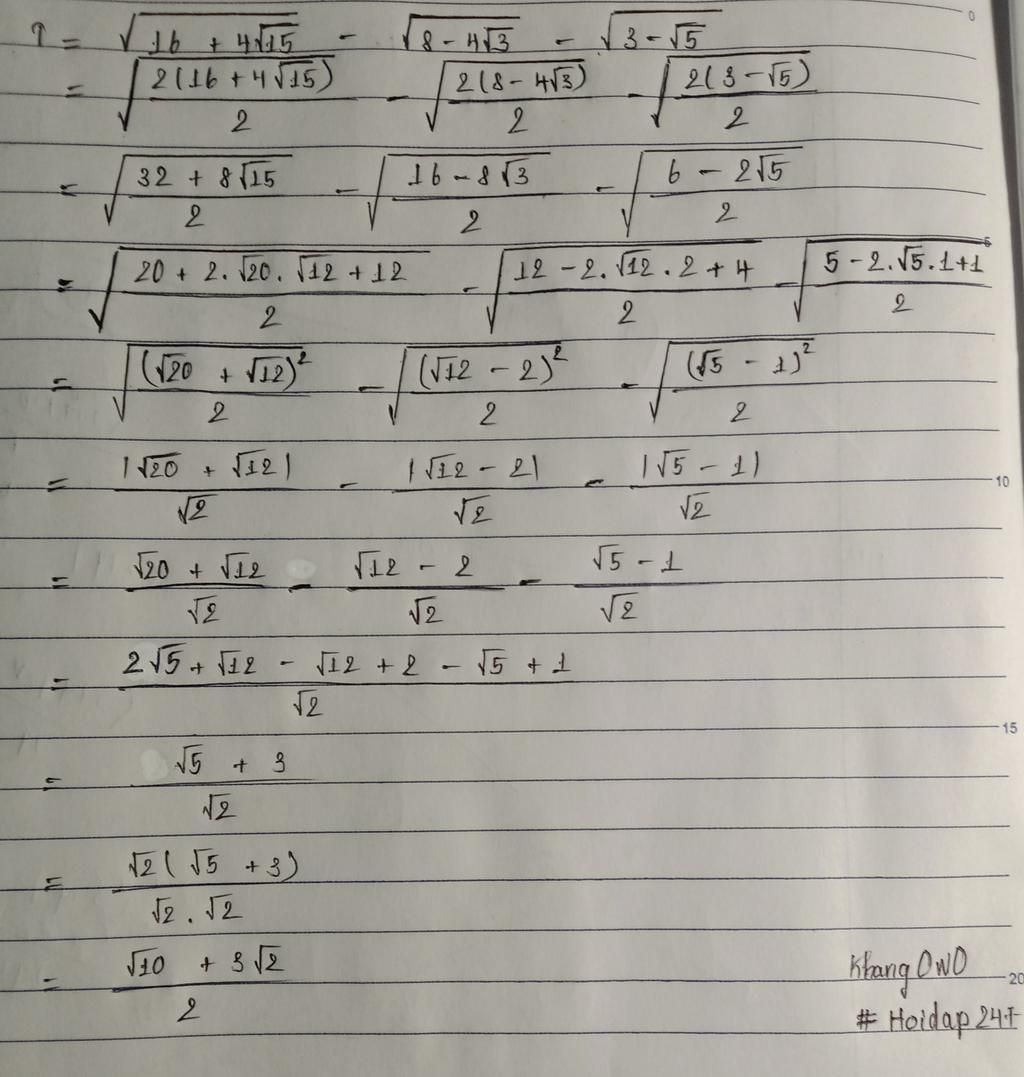 P = √(16 + 4√15) - √(8 - 4√3) - √(3 - √5)
= √(2(16 + 4√15)/2) - √(2(8 - 4√3)/2) - √(2(3 - √5)/2)
= √((32 + 8√15)/2) - √((16 - 8√3)/2) - √((6 - 2√5)/2)
= √((20 + 2.√20.√12 + 12)/2) - √((12 - 2.√12.2 + 4)/2) - √((5 - 2.√5.1+1)/2)
= √((√20 + √12)²/2) - √((√12 - 2)²/2) - √((√5 - 1)²/2)
= |√20 + √12|/√2 - |√12 - 2|/√2 - |√5 - 1|/√2
= (√20 + √12)/√2 - (√12 - 2)/√2 - (√5 - 1)/√2
= (2√5 + √12 - √12 + 2 - √5 + 1)/√2
= (√5 + 3)/√2
= √2(√5 + 3)/(√2.√2)
= (√10 + 3√2)/2
Khang OwO
# Hoidap 247
0
5
10
15
20